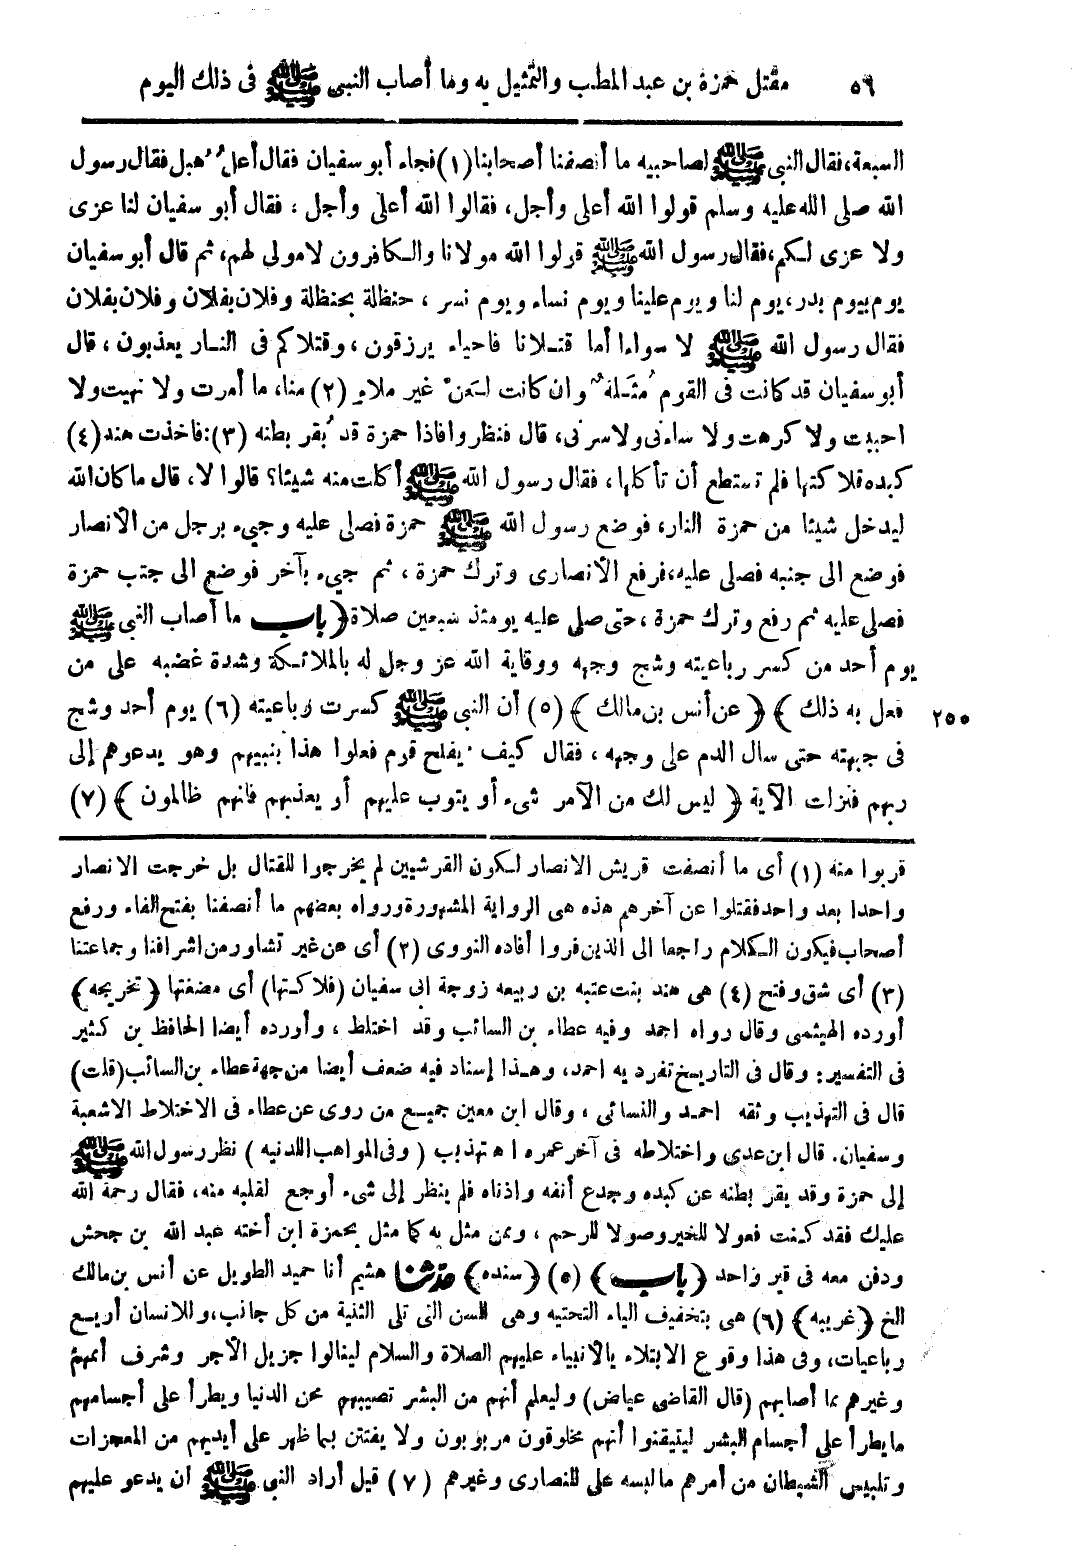 ٥٩ مقتل حمزة بن عبد المطلب والتمثيل به وما أصاب النبى ﷺ فى ذلك اليوم
السبعة، فقال النبى ﷺ لصاحبيه ما أنصفنا أصحابنا (١) فجاء أبو سفيان فقال أعلُ هبل فقال رسول
الله صلى الله عليه وسلم قولوا الله أعلى وأجل، فقالوا الله أعلى وأجل، فقال أبو سفيان لنا عزى
ولا عزى لكم، فقال رسول الله ﷺ قولوا الله مولانا والكافرون لا مولى لهم، ثم قال أبو سفيان
يوم بيوم بدر، يوم لنا ويوم علينا ويوم نساء ويوم نسر، حنظلة بحنظلة وفلان بفلان وفلان بفلان
فقال رسول الله ﷺ لا سواءا أما قتلانا فاحياء يرزقون، وقتلاكم فى النار يعذبون، قال
أبو سفيان قد كانت فى القوم مُثلةٌ وان كانت لعن غير ملاءٍ (٢) منا، ما أمرت ولا نهيت ولا
احببت ولا كرهت ولا ساءنى ولا سرنى، قال فنظروا فاذا حمزة قد بُقر بطنه (٣): فاخذت هند (٤)
كبده فلاكتها فلم تستطع أن تأكلها، فقال رسول الله ﷺ أكلت منه شيئا؟ قالوا لا، قال ما كان الله
ليدخل شيئا من حمزة النار، فوضع رسول الله ﷺ حمزة فصلى عليه وجىء برجل من الأنصار
فوضع الى جنبه فصلى عليه، فرفع الأنصارى وترك حمزة، ثم جىء بآخر فوضع الى جنب حمزة
فصلى عليه ثم رفع وترك حمزة، حتى صلى عليه يومئذ سبعين صلاة ﴿ باب ما أصاب النبى ﷺ
يوم أحد من كسر رباعيته وشج وجهه ووقاية الله عز وجل له بالملائكة وشدة غضبه على من
فعل به ذلك ﴾ ﴿ عن أنس بن مالك ﴾ (٥) أن النبى ﷺ كسرت رباعيته (٦) يوم أحد وشج
٢٥٥
فى جبهته حتى سال الدم على وجهه، فقال كيف يفلح قوم فعلوا هذا بنبيهم وهو يدعوهم إلى
ربهم فنزلت الآية ﴿ ليس لك من الأمر شىء أو يتوب عليهم أو يعذبهم فانهم ظالمون ﴾ (٧)
قربوا منه (١) أى ما أنصفت قريش الانصار لكون القرشيين لم يخرجوا للقتال بل خرجت الانصار
واحدا بعد واحد فقتلوا عن آخرهم هذه هى الرواية المشهورة ورواه بعضهم ما أنصفنا بفتح الفاء ورفع
أصحاب فيكون الكلام راجعا الى الذين فروا أفاده النووى (٢) أى عن غير تشاور من اشرافنا وجماعتنا
(٣) أى شق وفتح (٤) هى هند بنت عتبه بن ربيعه زوجة ابى سفيان (فلاكتها) أى مضغتها ﴿تخريجه﴾
أورده الهيثمى وقال رواه احمد وفيه عطاء بن السائب وقد اختلط، وأورده أيضا الحافظ بن كثير
فى التفسير: وقال فى التاريخ تفرد به احمد، وهذا إسناد فيه ضعف أيضا من جهة عطاء بن السائب (قلت)
قال فى التهذيب وثقه احمد والنسائى، وقال ابن معين جميع من روى عن عطاء فى الاختلاط الا شعبة
وسفيان. قال ابن عدى واختلاطه فى آخر عمره اه تهذيب (وفى المواهب اللدنيه) نظر رسول الله ﷺ
إلى حمزة وقد بقر بطنه عن كبده وجدع أنفه واذناه فلم ينظر إلى شىء أوجع لقلبه منه، فقال رحمة الله
عليك فقد كنت فعولا للخير وصولا للرحم، وممن مثل به كما مثل بحمزة ابن أخته عبد الله بن جحش
ودفن معه فى قبر واحد ﴿باب﴾ (٥) ﴿سنده﴾ حدثنا هشيم أنا حميد الطويل عن أنس بن مالك
الخ ﴿غريبه﴾ (٦) هى بتخفيف الياء التحتيه وهى للسن التى تلى الثنية من كل جانب، وللانسان أربع
رباعيات، وفى هذا وقوع الابتلاء بالأنبياء عليهم الصلاة والسلام لينالوا جزيل الأجر وشرف أممهم
وغيرهم بما أصابهم (قال القاضى عياض) وليعلم أنهم من البشر تصيبهم محن الدنيا ويطرأ على أجسامهم
ما يطرأ على أجسام البشر ليتيقنوا أنهم مخلوقون مربوبون ولا يفتتن بما ظهر على أيديهم من المعجزات
وتلبيس الشيطان من أمرهم ما لبسه على النصارى وغيرهم (٧) قيل أراد النبى ﷺ ان يدعو عليهم